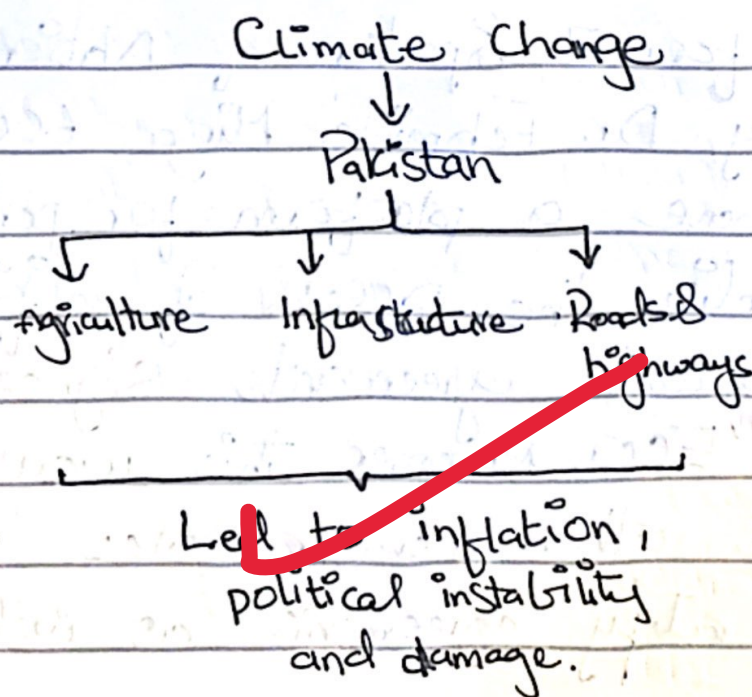 Climate Change
Pakistan
Agriculture Infrastructure Roads &
highways
Led to inflation,
political instability
and damage.